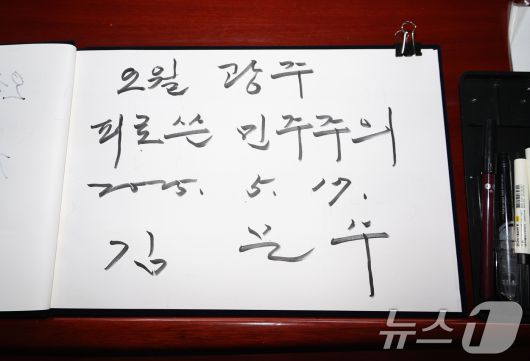 오월 광주
피로쓴 민주주의
2025. 5. 17.
김 문수
뉴스1